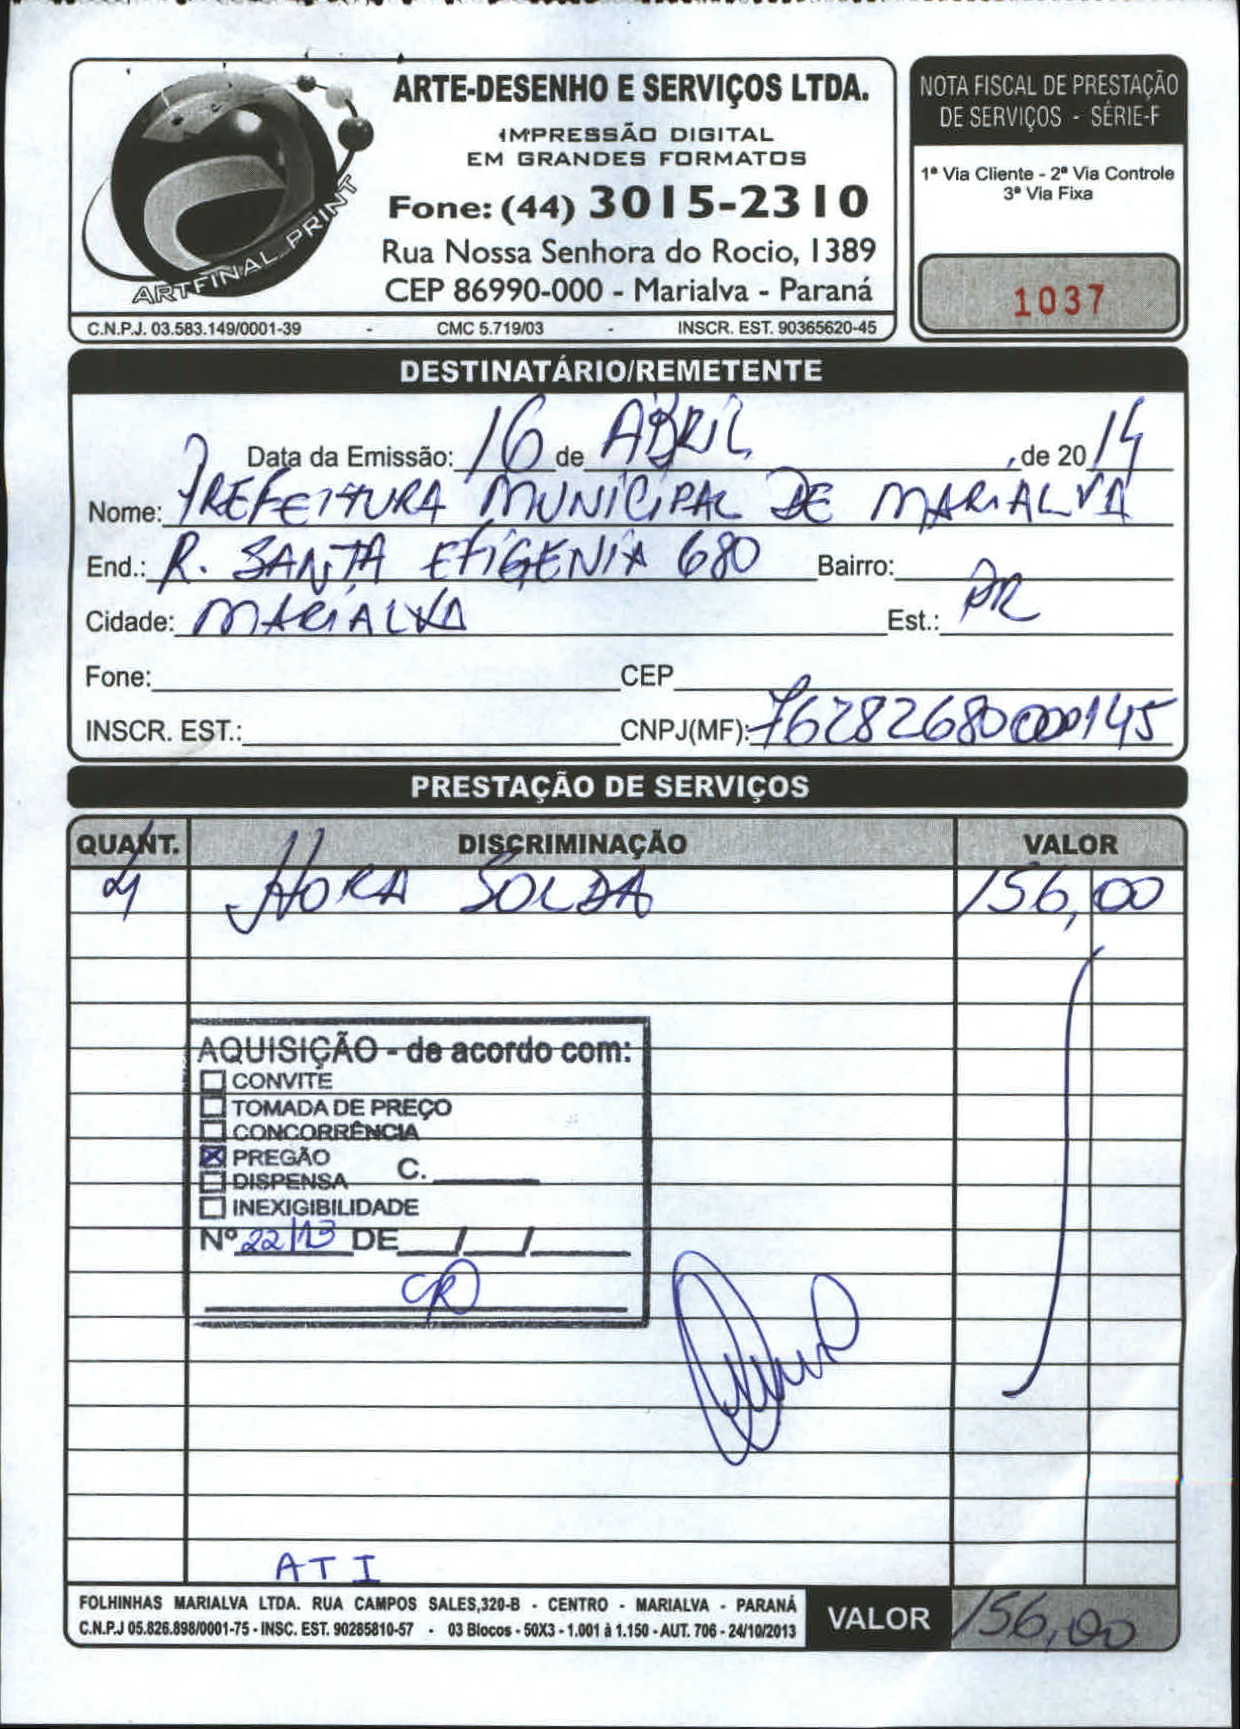 ARTE-DESENHO E SERVIÇOS LTDA.
IMPRESSÃO DIGITAL
EM GRANDES FORMATOS
Fone: (44) 3015-2310
Rua Nossa Senhora do Rocio, 1389
CEP 86990-000 - Marialva - Paraná
ARTFINAL PRINT
C.N.P.J. 03.583.149/0001-39 - CMC 5.719/03 - INSCR. EST. 90365620-45
NOTA FISCAL DE PRESTAÇÃO
DE SERVIÇOS - SÉRIE-F
1ª Via Cliente - 2ª Via Controle
3ª Via Fixa
1037
DESTINATÁRIO/REMETENTE
Data da Emissão: 16 de ABRIL , de 2014
Nome: PREFEITURA MUNICIPAL DE MARIALVA
End.: R. SANTA EFIGENIA 680 Bairro:
Cidade: MARIALVA Est.: PR
Fone: CEP
INSCR. EST.: CNPJ(MF): 76282680000145
PRESTAÇÃO DE SERVIÇOS
QUANT. DISCRIMINAÇÃO VALOR
4 HORA SOLDA 156,00
AQUISIÇÃO - de acordo com:
CONVITE
TOMADA DE PREÇO
CONCORRÊNCIA
PREGÃO
DISPENSA C.
INEXIGIBILIDADE
Nº 22/13 DE / /
ATI
FOLHINHAS MARIALVA LTDA. RUA CAMPOS SALES,320-B - CENTRO - MARIALVA - PARANÁ
C.N.P.J 05.826.898/0001-75 - INSC. EST. 90285810-57 - 03 Blocos - 50X3 - 1.001 à 1.150 - AUT. 706 - 24/10/2013
VALOR 156,00